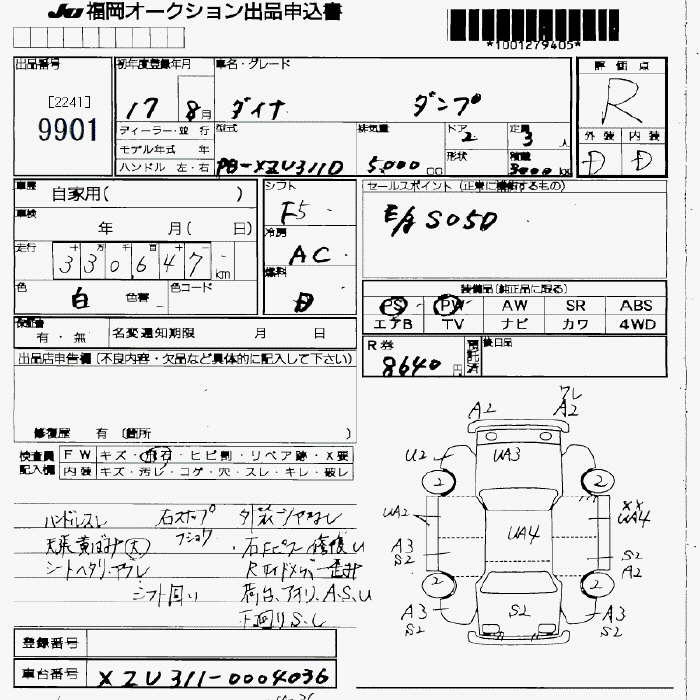 JU 福岡オークション出品申込書
*1001279405*
出品番号 初年度登録年月 車名・グレード 評価点
[2241]
9901
17 8月 ダイナ ダンプ R
ディーラー・並行 型式 排気量 ドア 定員 外装 内装
モデル年式 年 2 3人 D D
ハンドル 左・右 PB-XZU311D 5,000 CC 形状 積載 3000 kg
車歴 自家用( ) シフト F5 セールスポイント (正常に機能するもの)
車検 年 月( 日) 冷房 AC E/g S05D
走行 十 万 千 百 十
330,647 km 燃料
色 白 色番 色コード 装備品(純正品に限る)
PS PW AW SR ABS
エアB TV ナビ カワ 4WD
保証書 有・無 名変通知期限 月 日
R券 8640円 預託済 後日品
出品店申告欄(不良内容・欠品など具体的に記入して下さい)
修復歴 有 (箇所 )
検査員記入欄 FW キズ・飛石・ヒビ割・リペア跡・X要
内装 キズ・汚レ・コゲ・穴・スレ・キレ・破レ
ハンドルスレ 右ステップ
天張黄ばみ(大) フショク
シートヘタリ・ヤブレ
シフト回り 荷台、アオリ、A.S.U
下回りS.
A2 ワレ A2
U2 UA3
2 2
UA2 UA4 XX UA4
A3 S2 S2 A2
2 2
A3 S2 S2 A3 S2
登録番号
車台番号 XZU311-0004036